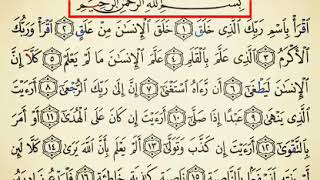 بِسْمِ اللَّهِ الرَّحْمَٰنِ الرَّحِيمِ
ٱقْرَأْ بِٱسْمِ رَبِّكَ ٱلَّذِى خَلَقَ ١ خَلَقَ ٱلْإِنسَٰنَ مِنْ عَلَقٍ ٢ ٱقْرَأْ وَرَبُّكَ
ٱلْأَكْرَمُ ٣ ٱلَّذِى عَلَّمَ بِٱلْقَلَمِ ٤ عَلَّمَ ٱلْإِنسَٰنَ مَا لَمْ يَعْلَمْ ٥ كَلَّآ إِنَّ
ٱلْإِنسَٰنَ لَيَطْغَىٰٓ ٦ أَن رَّءَاهُ ٱسْتَغْنَىٰٓ ٧ إِنَّ إِلَىٰ رَبِّكَ ٱلرُّجْعَىٰٓ ٨ أَرَءَيْتَ
ٱلَّذِى يَنْهَىٰ ٩ عَبْدًا إِذَا صَلَّىٰٓ ١٠ أَرَءَيْتَ إِن كَانَ عَلَى ٱلْهُدَىٰٓ ١١ أَوْ أَمَرَ
بِٱلتَّقْوَىٰٓ ١٢ أَرَءَيْتَ إِن كَذَّبَ وَتَوَلَّىٰٓ ١٣ أَلَمْ يَعْلَم بِأَنَّ ٱللَّهَ يَرَىٰ ١٤ كَلَّا لَئِن
بِٱلنَّاصِيَةِ ١٥ نَاصِيَةٍ كَٰذِبَةٍ خَاطِئَةٍ ١٦